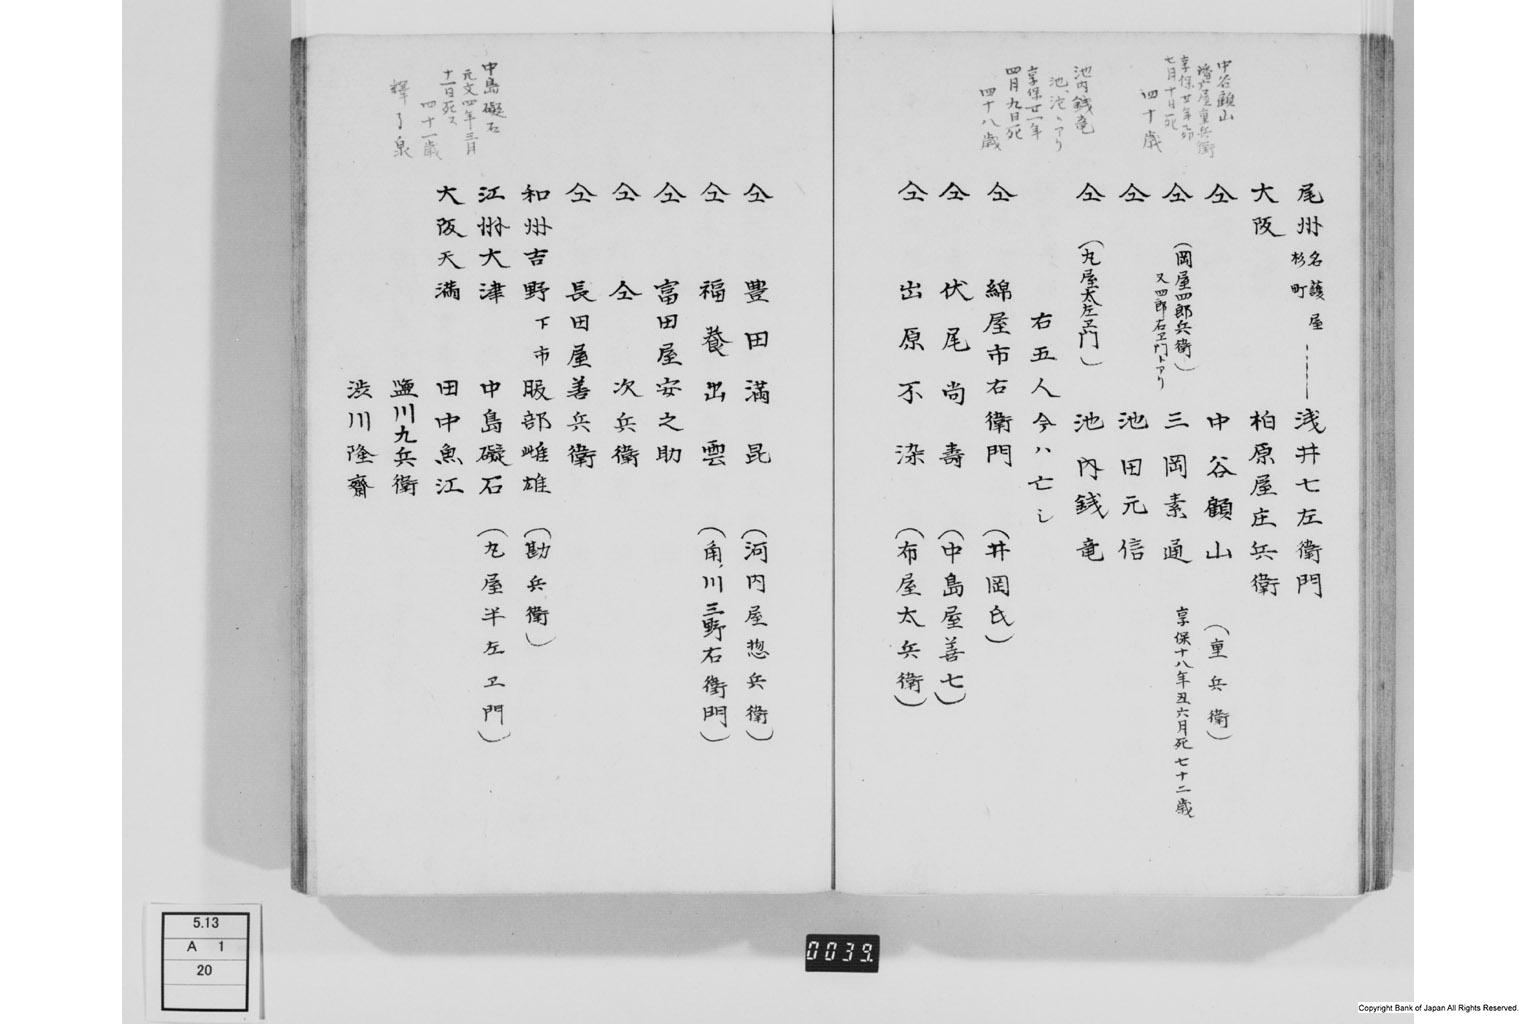 中谷顧山
七月十日死
四十歳
池内銭竜
享保廿一年
四月九日死
四十八歳
尾州 名護屋 杉町 浅井七左衛門
大阪 柏原屋庄兵衛
仝 中谷顧山 (重兵衛)
仝 (岡屋四郎兵衛) 又四郎右ヱ門トアリ 三岡素通 享保十八年丑六月死七十二歳
仝 池田元信
仝 (丸屋太左ヱ門) 池内銭竜
右五人今ハ亡シ
仝 綿屋市右衛門 (井岡氏)
仝 伏尾尚壽 (中島屋善七)
仝 出原不染 (布屋太兵衛)
中島礙石
元文四年三月
十一日死ス
四十一歳
釋了泉
仝 豊田満昆 (河内屋惣兵衛)
仝 福養出雲 (角ノ川三野右衛門)
仝 富田屋安之助
仝 仝 次兵衛
仝 長田屋善兵衛
和州吉野下市 服部雌雄 (勘兵衛)
江州大津 中島礙石 (丸屋半左ヱ門)
大阪天満 田中魚江
塩川九兵衛
渋川隆齋
5.13
A 1
20
0039
Copyright Bank of Japan All Rights Reserved.